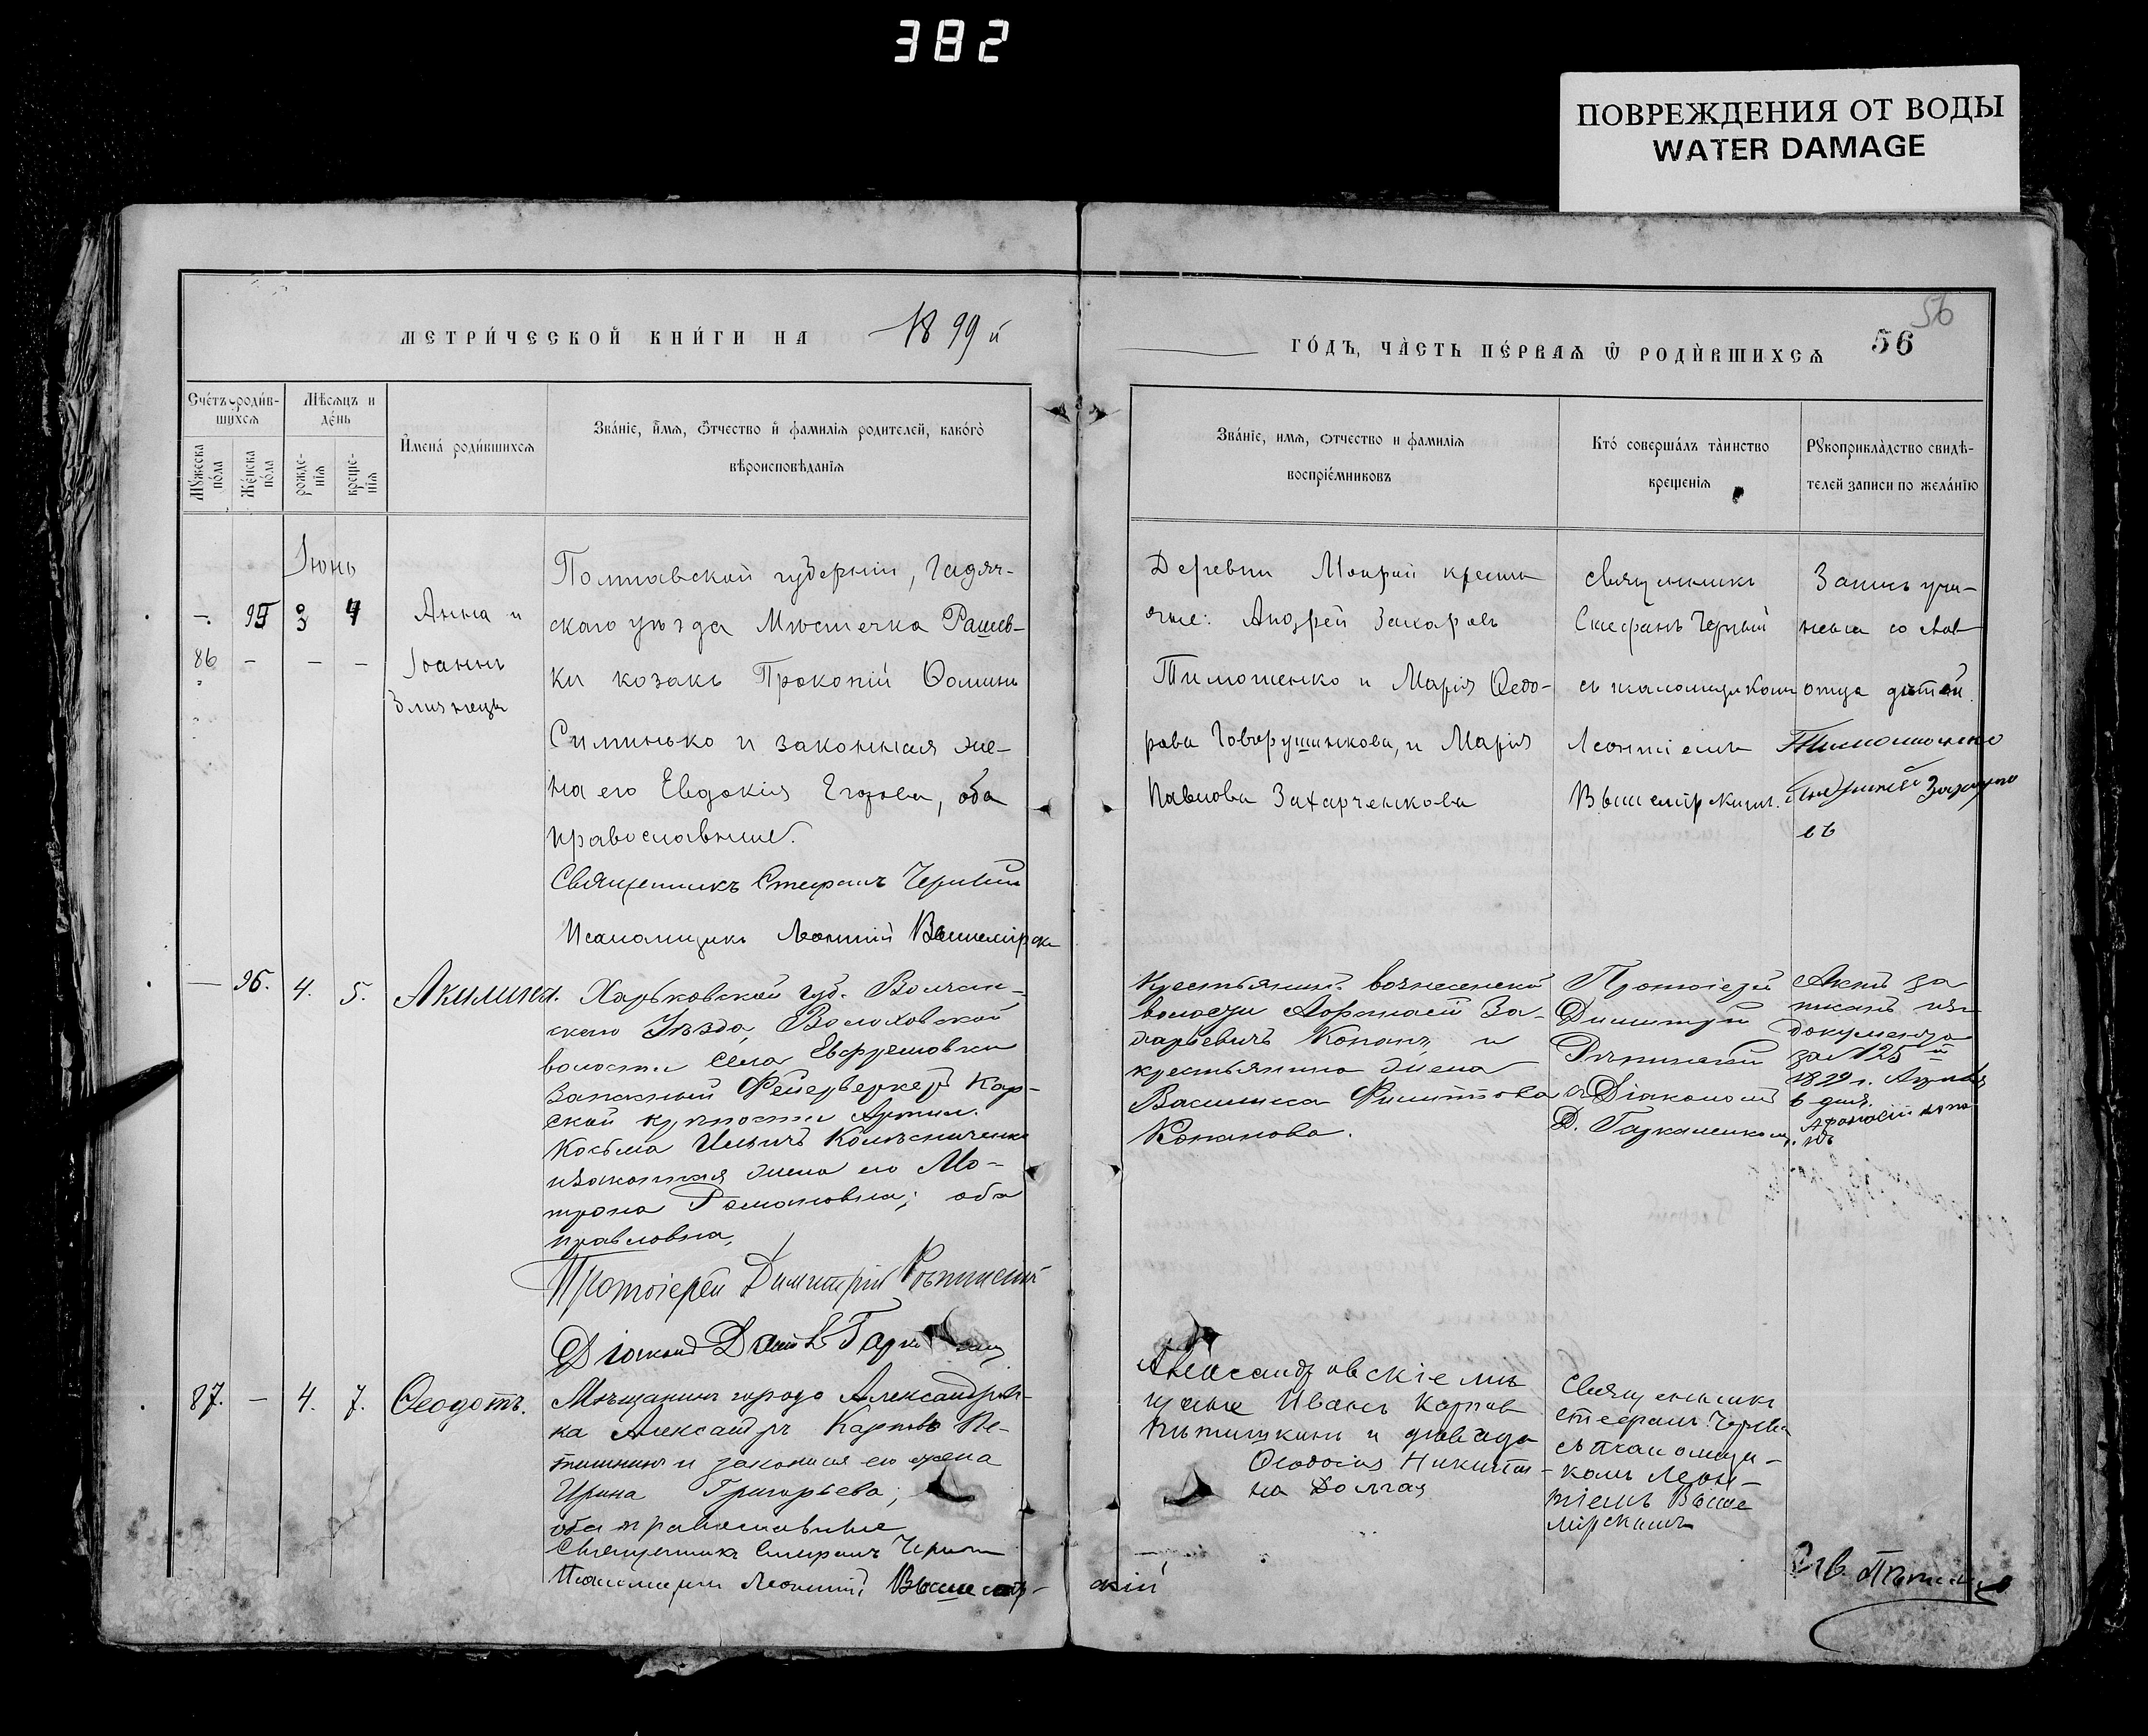 382
ПОВРЕЖДЕНИЯ ОТ ВОДЫ
WATER DAMAGE
МЕТРИ́ЧЕСКОЙ КНИ́ГИ НА 1899 й
ГО́ДЪ, ЧА̀СТЬ ПЕ́РВАѦ Ѿ РОДЍВШИХСѦ 56
56
Счетъ роди́в-
шихсѧ
Мѣсѧцъ и
де́нь
Мꙋжеска
по́ла
Же́нска
по́ла
рожде-
нїѧ
креще-
нїѧ
И҆мена́ роди́вшихсѧ
Зва́нїе, и҆́мѧ, ѻ҆́тчество и҆ фамилїѧ родителей, како́гѡ
вѣроисповѣ́данїѧ
Зва́нїе, имѧ, ѻтчество и фамилїѧ
воспрїе́мниковъ
Кто́ соверша́лъ та̀инство
крещенїѧ
Рꙋкоприкла̀дство свидѣ-
телей записи по жела́нїю
Іюнь
—. 95 3 4
Анна и
86 — — —
Іоаннъ
Близнецы
Полтавской губерніи, Гадяч-
скаго уѣзда Мѣстечка Рашев-
ки козакъ Прокопій Ѳоминъ
Симинько и законная же-
на его Евдокія Егорова, оба
православные.
Священникъ Стефанъ Черный
Псаломщикъ Леонтій Вышемірск
Деревни Мокрой крестья
не: Андрей Захаровъ
Тимошенко и Марія Ѳедо-
рова Говорушинкова, и Марія
Павлова Захарченкова
Священникъ
Стефанъ Черный
съ псаломщикомъ
Леонтіемъ
Вышемірскимъ.
Запись учи-
нена со слов
отца дѣтей
Тимошенко
Андрей Захаро
въ
— 96. 4. 5. Акилина.
Харьковской губ. Волчан-
скаго Уѣзда, Волоховской
волости села Ефремовки
Запасный Фейерверкеръ Кар-
ской крѣпости Артил.
Косьма Ильичъ Колѣсниченко
и законная жена его Мо-
трона Романовна; оба
правословна,
Протоіерей Димитрій Рѣпинскій
Діаконъ
Крестьянинъ вознесенской
волости Аѳанасій За-
харьевичъ Копанъ и
крестьянина жена
Василиса Филиппова
Копанова.
Протоіерей
Димитрій
Рѣпинскій
и Діаконъ
Д. Гаркаленко
Актъ за
писанъ изъ
документа
за № 125 й
1899 г. Апрѣля
6 дня.
Аѳанасій Копа
нъ
87. — 4. 7. Ѳеодотъ.
Мѣщанинъ города Александров-
ка Александръ Карповъ Пѣ-
тишкинъ и законная его жена
Ирина Григорьева;
оба православные
Священникъ Стефанъ Черный
Псаломщикъ Леонтій Вышемір- скій
Александровскіе мѣ
щане Иванъ Карповъ
Пѣтишкинъ и дѣвица
Ѳеодосія Никити-
на Долгая
Священникъ
Стефанъ Черный
съ псаломщи-
комъ Леон-
тіемъ Выше
мірскимъ